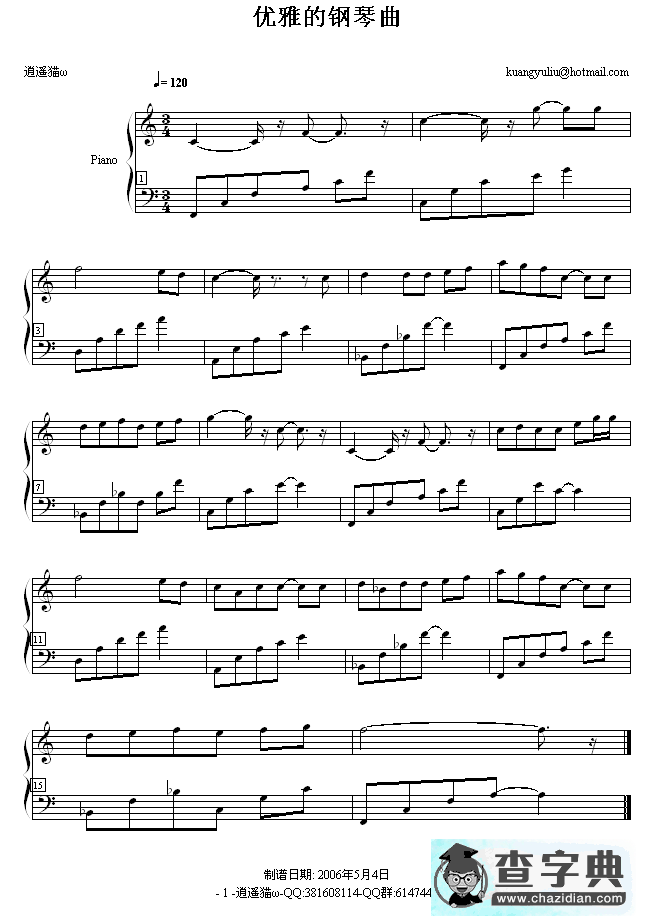 优雅的钢琴曲
逍遥猫ω
= 120
kuangyuliu@hotmail.com
Piano
1
3
4
3
4
3
7
11
15
制谱日期: 2006年5月4日
- 1 -逍遥猫ω-QQ:381608114-QQ群:614744
查字典
www.chazidian.com